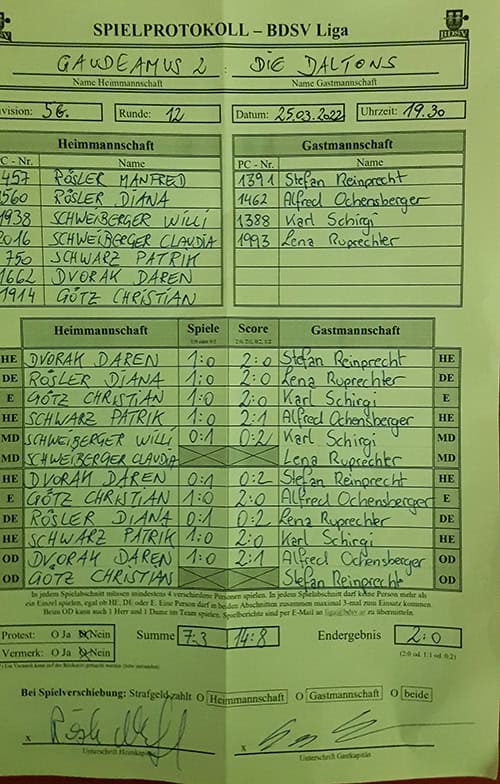 SPIELPROTOKOLL – BDSV Liga
GAUDEAMUS 2 : DIE DALTONS
Name Heimmannschaft Name Gastmannschaft
vision: 5E. Runde: 12 Datum: 25.03.2022 Uhrzeit: 19.30
Heimmannschaft Gastmannschaft
C - Nr. Name PC - Nr. Name
457 RÖSLER MANFRED 1391 Stefan Reinprecht
560 RÖSLER DIANA 1462 Alfred Ochensberger
1938 SCHWEIBERGER WILLI 1388 Karl Schirgi
2016 SCHWEIBERGER CLAUDIA 1993 Lena Ruprechter
750 SCHWARZ PATRIK
1662 DVORAK DAREN
1914 GÖTZ CHRISTIAN
Heimmannschaft Spiele Score Gastmannschaft
HE DVORAK DAREN 1:0 2:0 Stefan Reinprecht HE
DE RÖSLER DIANA 1:0 2:0 Lena Ruprechter DE
E GÖTZ CHRISTIAN 1:0 2:0 Karl Schirgi E
HE SCHWARZ PATRIK 1:0 2:1 Alfred Ochensberger HE
MD SCHWEIBERGER WILLI 0:1 0:2 Karl Schirgi MD
MD SCHWEIBERGER CLAUDIA Lena Ruprechter MD
HE DVORAK DAREN 0:1 0:2 Stefan Reinprecht HE
E GÖTZ CHRISTIAN 1:0 2:0 Alfred Ochensberger E
DE RÖSLER DIANA 0:1 0:2 Lena Ruprechter DE
HE SCHWARZ PATRIK 1:0 2:0 Karl Schirgi HE
OD DVORAK DAREN 1:0 2:1 Alfred Ochensberger OD
OD GÖTZ CHRISTIAN Stefan Reinprecht OD
In jedem Spielabschnitt müssen mindestens 4 verschiedene Personen spielen. In jedem Spielabschnitt darf keine Person mehr als
ein Einzel spielen, egal ob HE, DE oder E. Eine Person darf in beiden Abschnitten zusammen maximal 3-mal zum Einsatz kommen.
Beim OD kann auch 1 Herr und 1 Dame im Team spielen. Spielberichte sind per E-Mail an liga@bdsv.at zu übermitteln.
Protest: O Ja O Nein Summe 7:3 14:8 Endergebnis 2:0
Vermerk: O Ja O Nein (2:0 od. 1:1 od. 0:2)
Bei Spielverschiebung: Strafgeld zahlt O Heimmannschaft O Gastmannschaft O beide
x x
Unterschrift Heimkapitän Unterschrift Gastkapitän